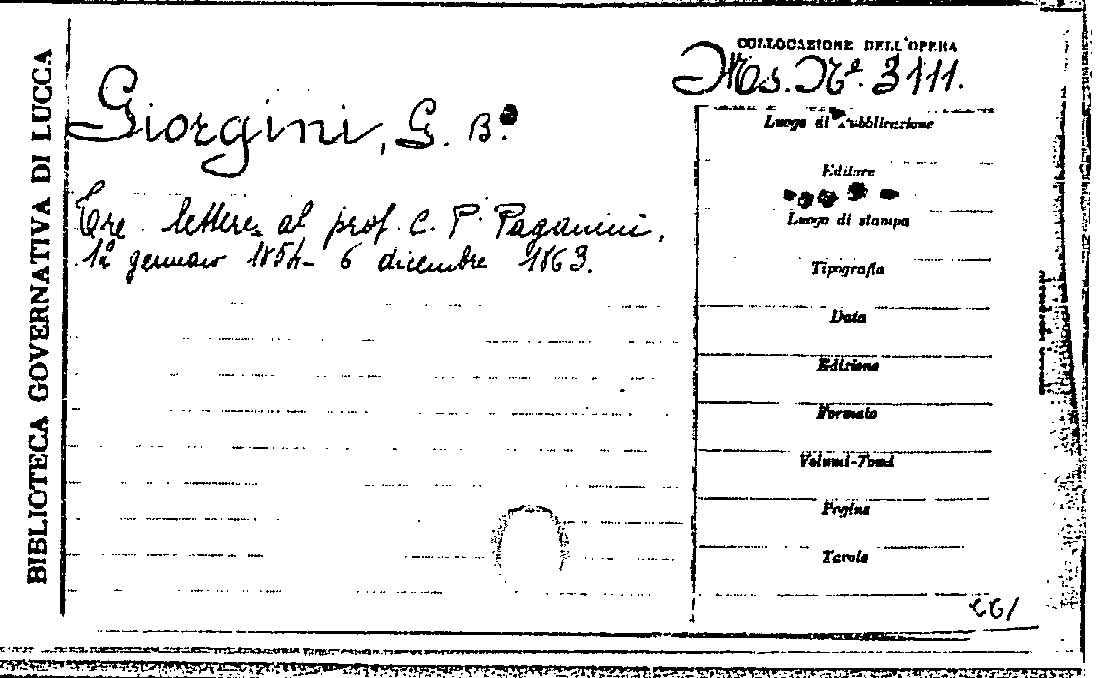 BIBLIOTECA GOVERNATIVA DI LUCCA
Giorgini, G. B.
Tre lettere al prof. C. P. Paganini,
12 gennaio 1854 - 6 dicembre 1863.
COLLOCAZIONE DELL'OPERA
Ms. Nº. 3111.
Luogo di Pubblicazione
Editore
Luogo di stampa
Tipografia
Data
Edizione
Formato
Volumi-Tomi
Pagine
Tavole